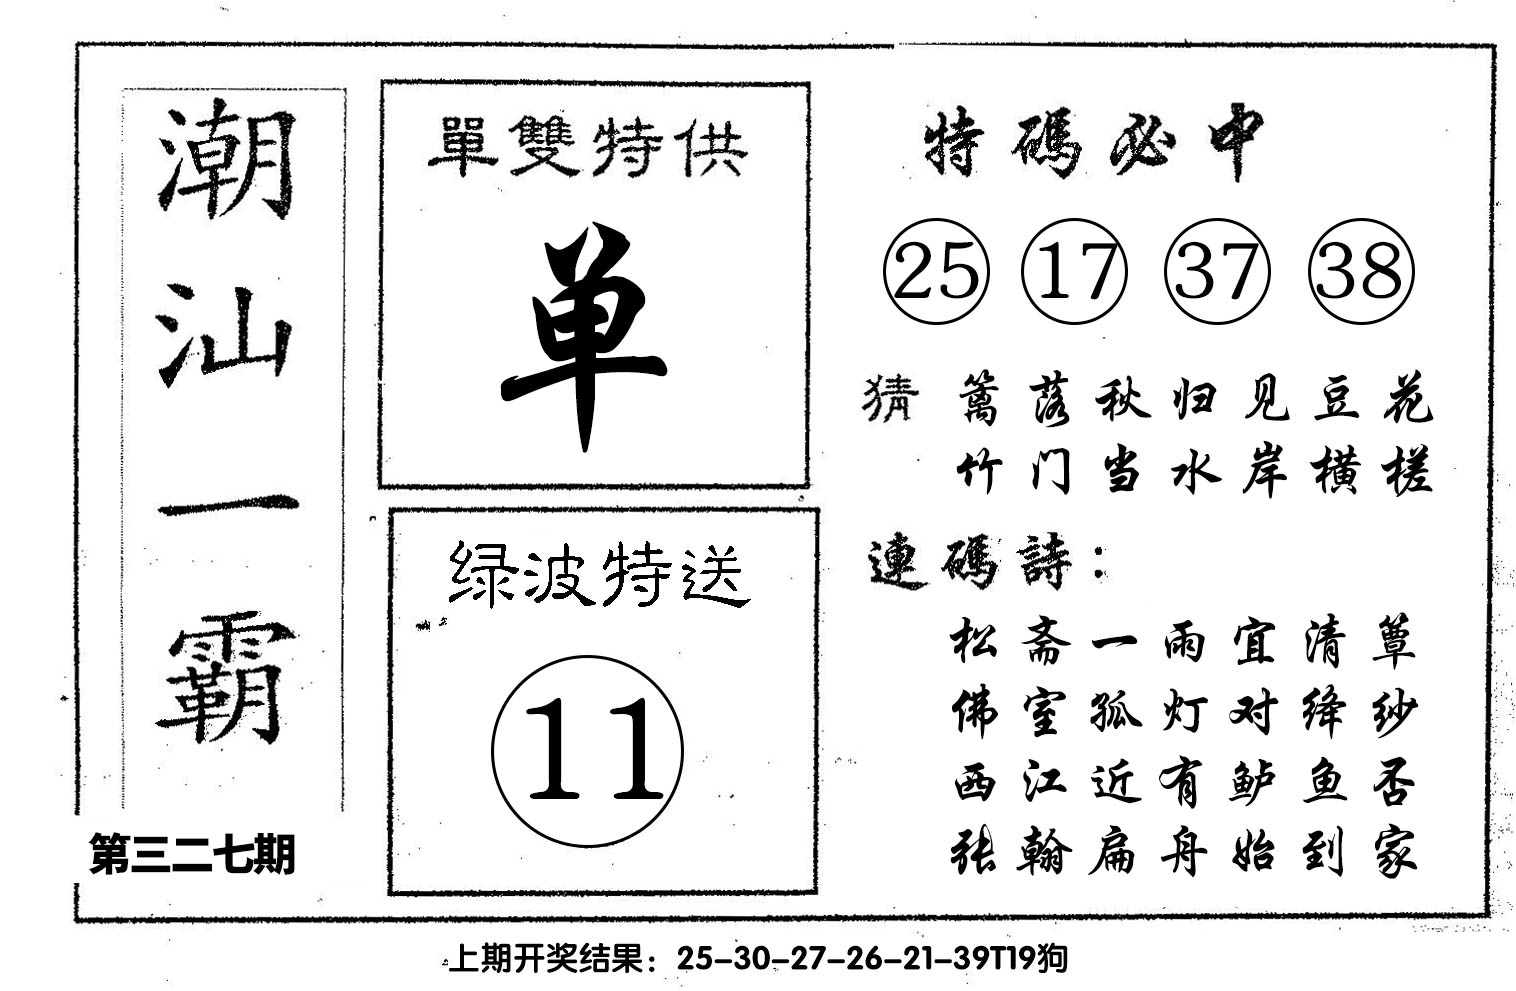 潮汕一霸
第三二七期
單雙特供
单
绿波特送
11
特碼必中
25 17 37 38
猜 篱落秋归见豆花
竹门当水岸横槎
連碼詩：
松斋一雨宜清簟
佛室孤灯对绛纱
西江近有鲈鱼否
张翰扁舟始到家
上期开奖结果：25-30-27-26-21-39T19狗